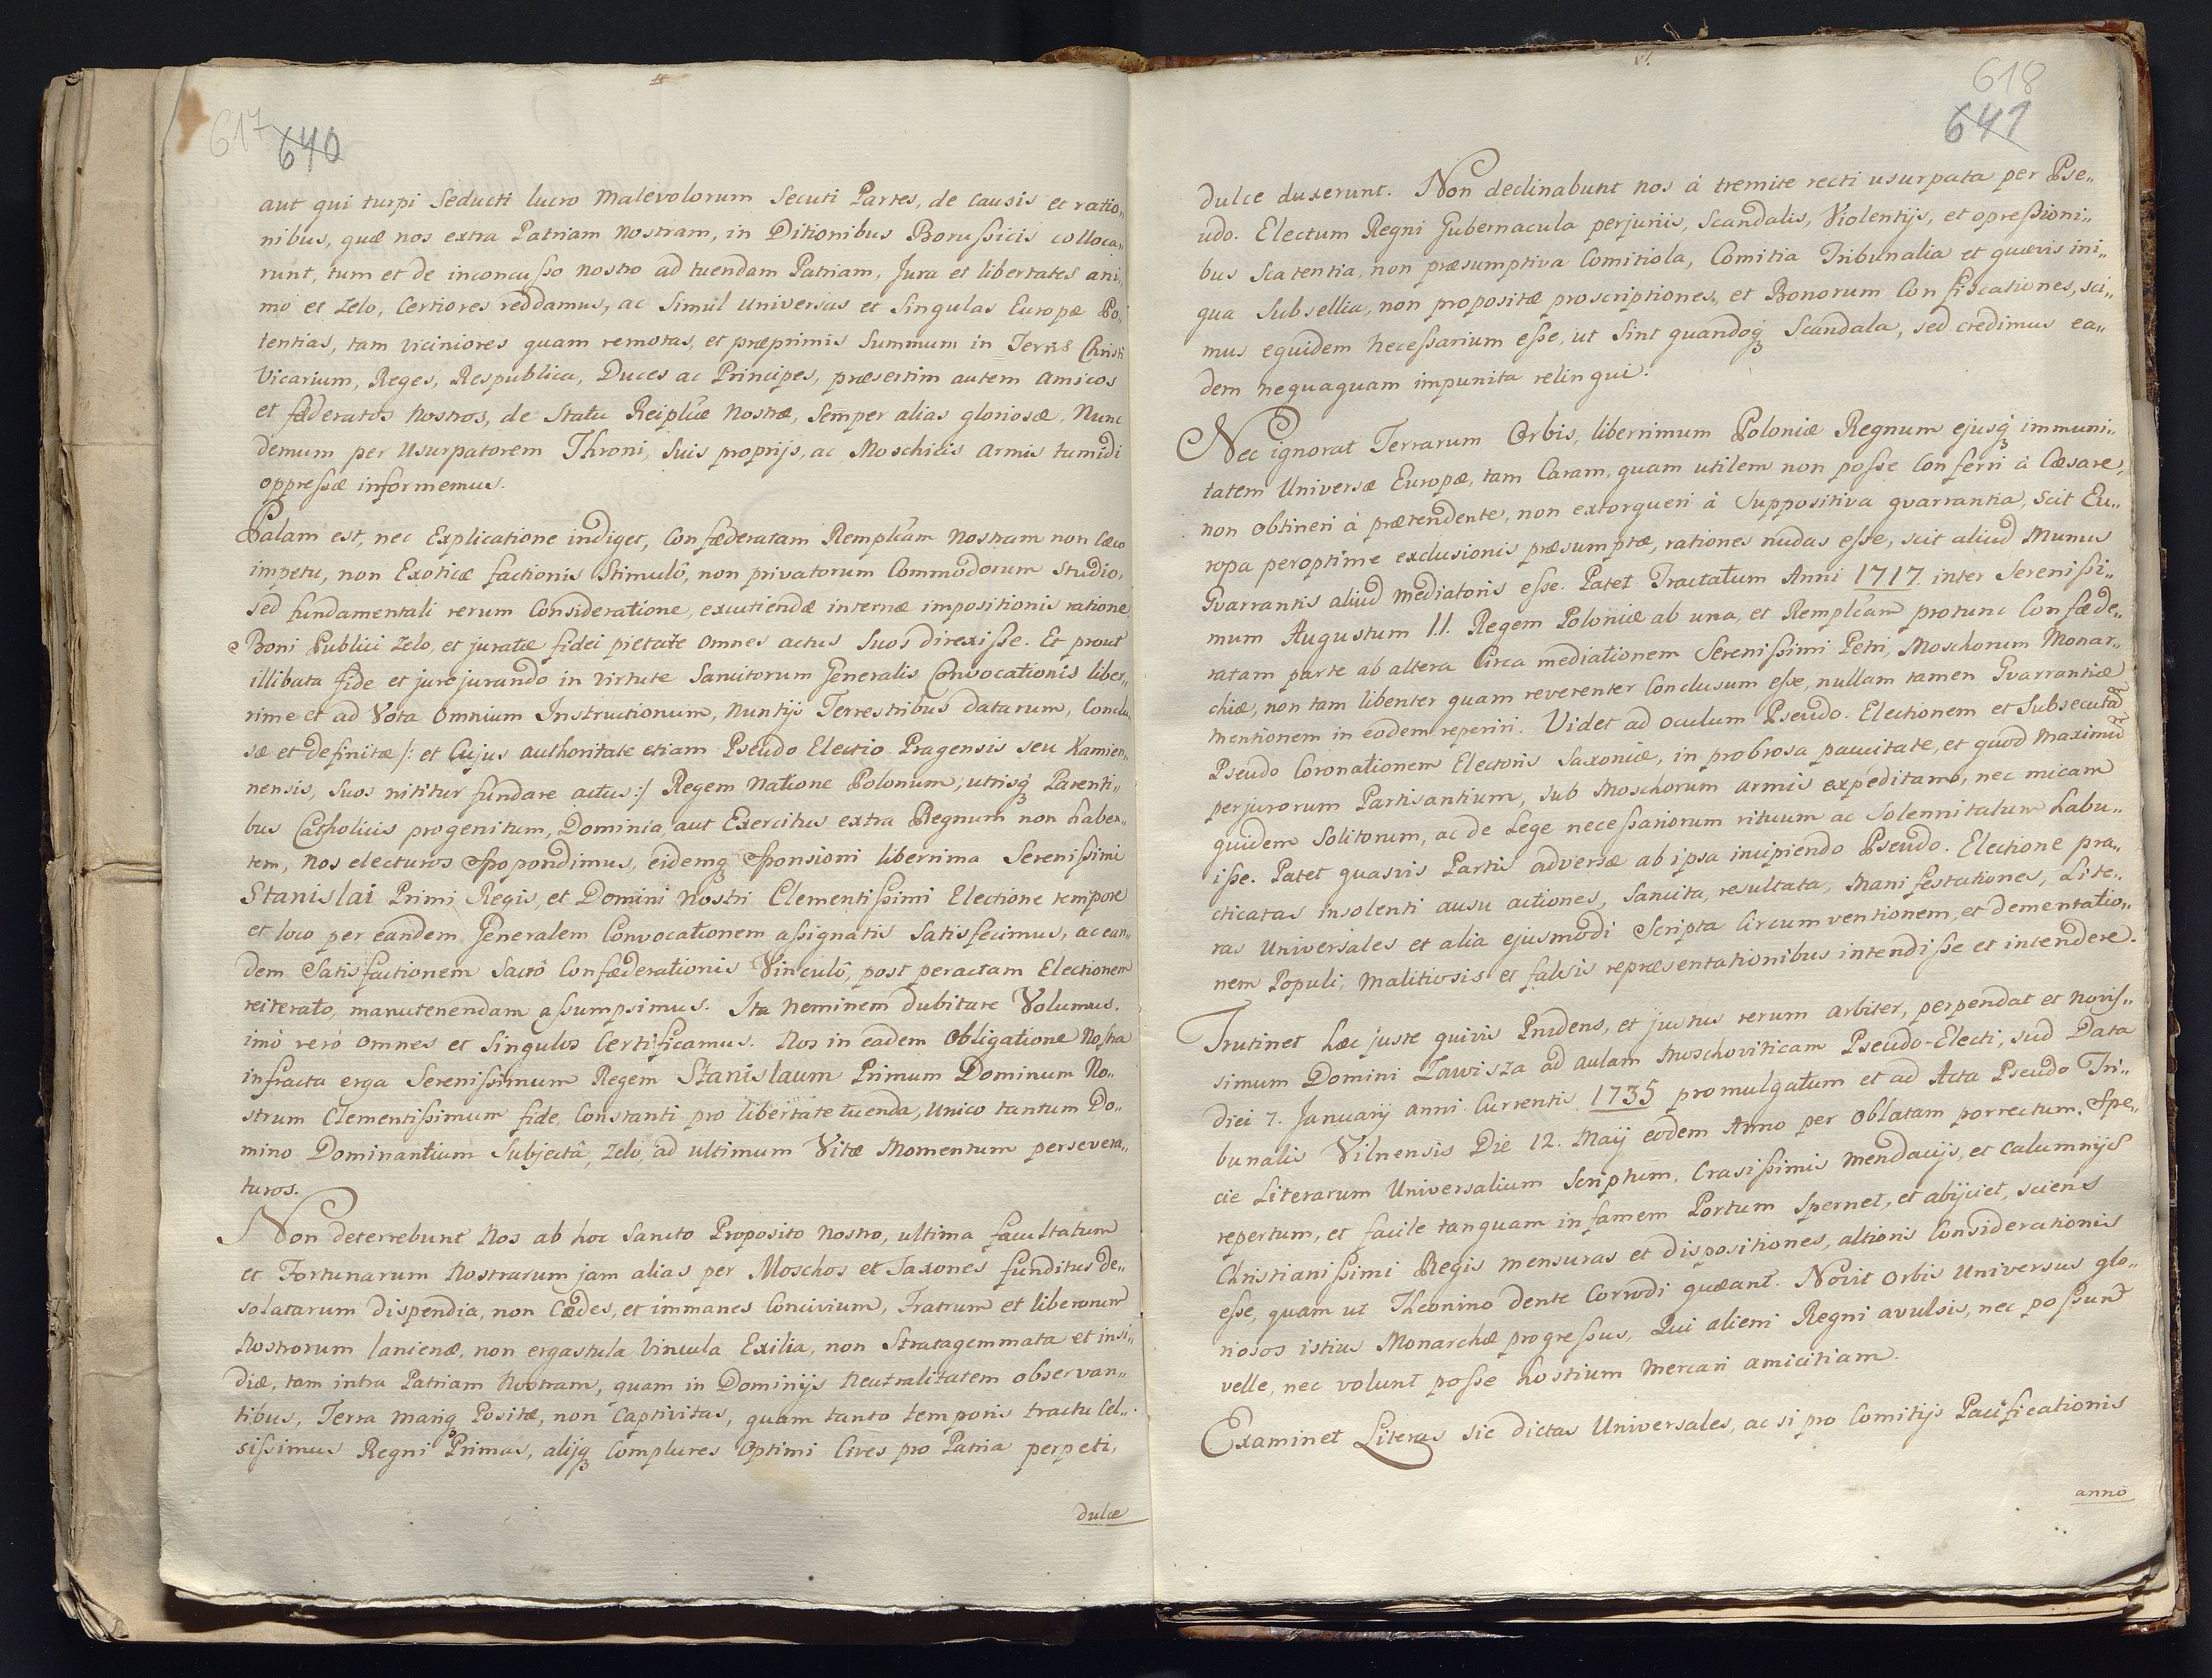 617 640
aut qui turpi Seducti lucro Malevolorum Secuti Partes, de causis et ratio„
nibus, quæ nos extra Patriam nostram, in Ditionibus Borußicis colloca„
runt, tum et de inconcußo nostro ad tuendam Patriam, Jura et libertates ani„
mo et zelo, Certiores reddamus, ac Simul Universas et Singulas Europæ Po„
tentias, tam viciniores quam remotas, et præprimis Summum in Terris Christi
Vicarium, Reges, Respublica, Duces ac Principes, præsertim autem Amicos
et fæderatos Nostros, de Statu Reiplæ Nostræ, Semper alias gloriosæ, Nunc
demum per Usurpatorem Throni, Suis proprijs, ac Moschicis Armis tumidi
oppreßæ informemus.
Palam est, nec Explicatione indiget, Confæderatam Remplicam Nostram non Cæco
impetu, non Exoticæ factionis Stimulô, non privatorum Commodorum Studio,
Sed fundamentali rerum Consideratione, excutiendæ internæ impositionis ratione
Boni Publici zelo, et juratæ fidei pietate Omnes actus Suos direxiße. Et prout
illibata fide et jurejurando in virtute Sancitorum Generalis Convocationis liber„
rime et ad Vota Omnium Instructionum, Nuntijs Terrestribus datarum, Conclu„
sæ et definitæ /: et Cujus authoritate etiam Pseudo Electio Pragensis seu Kamien„
nensis, Suos nititur fundare actus :/ Regem Natione Polonum, utrisq; Parenti„
bus Catholicis progenitum, Dominia, aut Exercitus extra Regnum non haben„
tem, Nos electuros Spopondimus, eidemq; Sponsioni liberrima Serenißimi
Stanislai Primi Regis, et Domini Nostri Clementißimi Electione tempore
et loco per eandem Generalem Convocationem aßignatis Satisfecimus, ac ean„
dem Satisfactionem Sacrô Confæderationis Vinculô, post peractam Electionem
reiterato, manutenendam aßumpsimus. Ita Neminem dubitare Volumus,
imò verò omnes et Singulos Certificamus. Nos in eadem Obligatione Nostra
infracta erga Serenißimum Regem Stanislaum Primum Dominum No„
strum Clementißimum fide, Constanti pro libertate tuenda, Unico tantum Do„
mino Dominantium Subjectâ, zelo, ad ultimum Vitæ Momentum persevera„
turos.
Non deterrebunt Nos ab hoc Sancto Proposito Nostro, ultima facultatum
et Fortunarum Nostrarum jam alias per Moschos et Saxones funditus de„
solatarum dispendia, non Cædes, et immanes Concivium, Fratrum et liberorum
Nostrorum lanienæ, non ergastula Vincula Exilia, non Stratagemmata et insi„
diæ, tam intra Patriam Nostram, quam in Dominijs Neutralitatem observan„
tibus, Terra mariq; Positæ, non Captivitas, quam tanto temporis tractu Cel„
sißimus Regni Primas, alijq; Complures Optimi Cives pro Patria perpeti,
dulce
618
641
dulce duxerunt. Non declinabunt nos à tremite recti usurpata per Pse„
udo. Electum Regni Gubernacula perjuriis, Scandalis, Violentijs, et opreßioni„
bus Scatentia, non præsumptiva Comitiola, Comitia Tribunalia et quævis ini„
qua Subsellia, non propositæ proscriptiones, et Bonorum Confiscationes, sci„
mus equidem Neceßarium eße, ut Sint quandoq; Scandala, sed credimus ea„
dem nequaquam impunita relinqui.
Nec ignorat Terrarum Orbis, liberrimum Poloniæ Regnum ejusq; immuni„
tatem Universæ Europæ, tam Caram, quam utilem non poße Conferri à Cæsare,
non obtineri à prætendente, non extorqueri à Suppositiva gvarrantia, Scit Eu„
ropa peroptime exclusionis præsumptæ, rationes nudas eße, scit aliud Munus
Gvarrantis aliud Mediatoris eße. Patet Tractatum Anni 1717. inter Serenißi„
mum Augustum II. Regem Poloniæ ab una, et Remplicam protunc Confæde„
ratam parte ab altera Circa mediationem Serenißimi Petri, Moschorum Monar„
chiæ, non tam libenter quam reverenter Conclusum eße, nullam tamen Gvarrantiæ
mentionem in eodem reperiri. Videt ad oculum Pseudo. Electionem et Subsecutam
Pseudo Coronationem Electoris Saxoniæ, in probrosa paucitate, et quod Maximum
perjurorum Partisantium, Sub Moschorum armis expeditamo, nec micam
quidem Solitorum, ac de Lege neceßariorum rituum ac Solennitatum habu„
iße. Patet quasvis Partis adversæ ab ipsa incipiendo Pseudo. Electione pra„
cticatas insolenti ausu actiones, Sancita, resultata, Manifestationes, Lite„
ras Universales et alia ejusmodi Scripta Circumventionem, et dementatio„
nem Populi, Malitiosis et falsis repræsentationibus intendiße et intendere.
Trutinet hæc juste quivis Prudens, et justus rerum arbiter, perpendat et Novis„
simum Domini Zawisza ad aulam Moschoviticam Pseudo-Electi, sud Data
diei 7. Januarij anni Currentis 1735 promulgatum et ad Acta Pseudo Tri„
bunalis Vilnensis Die 12. Maij eodem Anno per Oblatam porrectum, Spe„
cie Literarum Universalium Scriptum, Craßißimis mendacijs, et Calumnijs
repertum, et facile tanquam infamem Portum Spernet, et abijciet, sciens
Christianißimi Regis mensuras et dispositiones, altioris Considerationis
eße, quam ut Theonino dente Corrodi quæant. Novit Orbis Universus glo„
riosos istius Monarchæ progreßus, Qui alieni Regni avulsis, nec poßunt
velle, nec volunt poße hostium Mercari amicitiam.
Examinet Literas sic dictas Universales, ac si pro Comitijs Pacificationis
anno